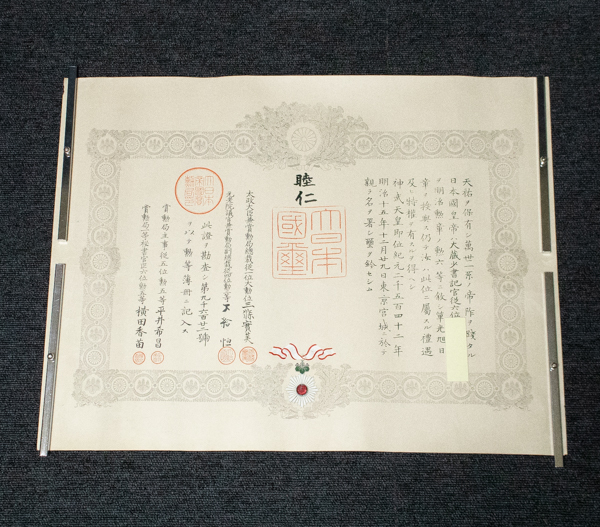 天祐ヲ保有シ萬世一系ノ帝祚ヲ踐タル
日本國皇帝ハ大藏少書記官從六位
ヲ明治勲章ノ勲六等ニ敍シ單光旭日
章ヲ授與ス仍テ汝ハ此位ニ屬スル禮遇
及ヒ特權ヲ有スルヲ得ヘシ
神武天皇即位紀元二千五百四十二年
明治十五年十二月廿九日東京皇城ニ於テ
親ラ名ヲ署シ璽ヲ鈐セシム
睦仁
大日本國璽
太政大臣兼賞勲局總裁從一位大勲位三條實美
元老院議官兼賞勲局副總裁從四位勲二等大給恒
此證ヲ勘査シ第九千六百廿二號
ヲ以テ勲等簿冊ニ記入ス
賞勲局主事從五位勲五等平井希昌
賞勲局一等秘書官正六位勲五等横田香苗